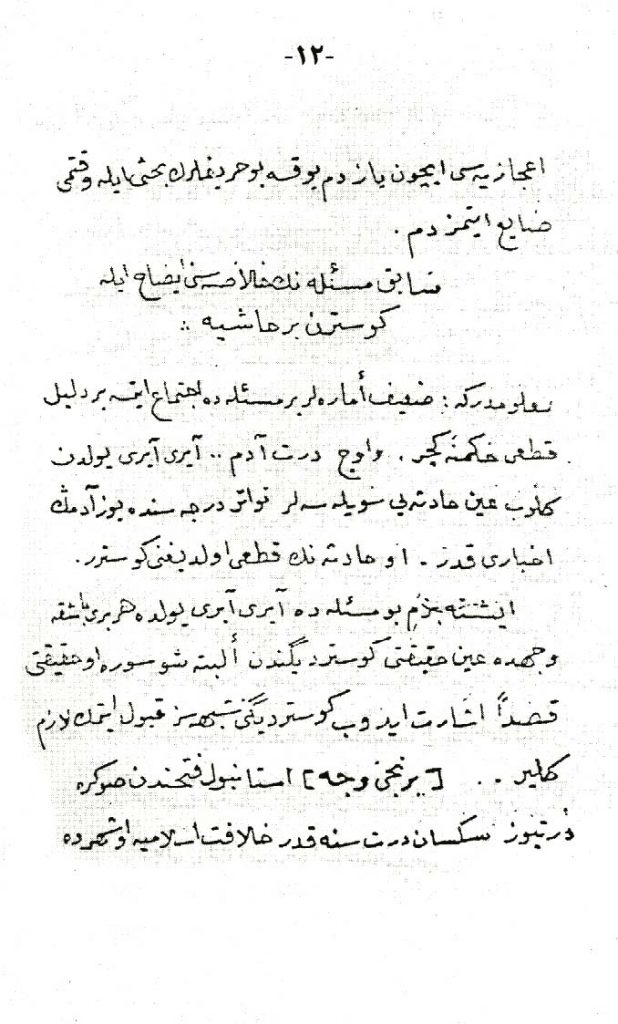 -١٢-
اعجازیه سی ایچون یازدم یوقسه بو حریفلرك بحثی ایله وقتمی
ضایع ایتمزدم .
سابق مسئله نك خلاصه سنی ایضاح ایله
كوسترن بر حاشیه ::
معلومدركه : ضعیف أماره لر بر مسئله ده اجتماع ایتسه بر دلیل
قطعی حكمنه كچر . و اوچ درت آدم .. آیری آیری یولدن
كلوب عین حادثه یی سویله سه لر تواتر درجه سنده یوز آدمڭ
اخباری قدر . او حادثه نك قطعی اولدیغنی كوسترر .
ایشته بزم بو مسئله ده آیری آیری یولده هر بری باشقه
وجهده عین حقیقتی كوستردیگندن ألبته شو سوره او حقیقتی
قصداً اشارت ایدوب كوستردیگنی شبهه سز قبول ایتمك لازم
كلیر .. [برنجی وجه] استانبول فتحندن صوكره
درتیوز سكسان درت سنه قدر خلافت اسلامیه او شهرده